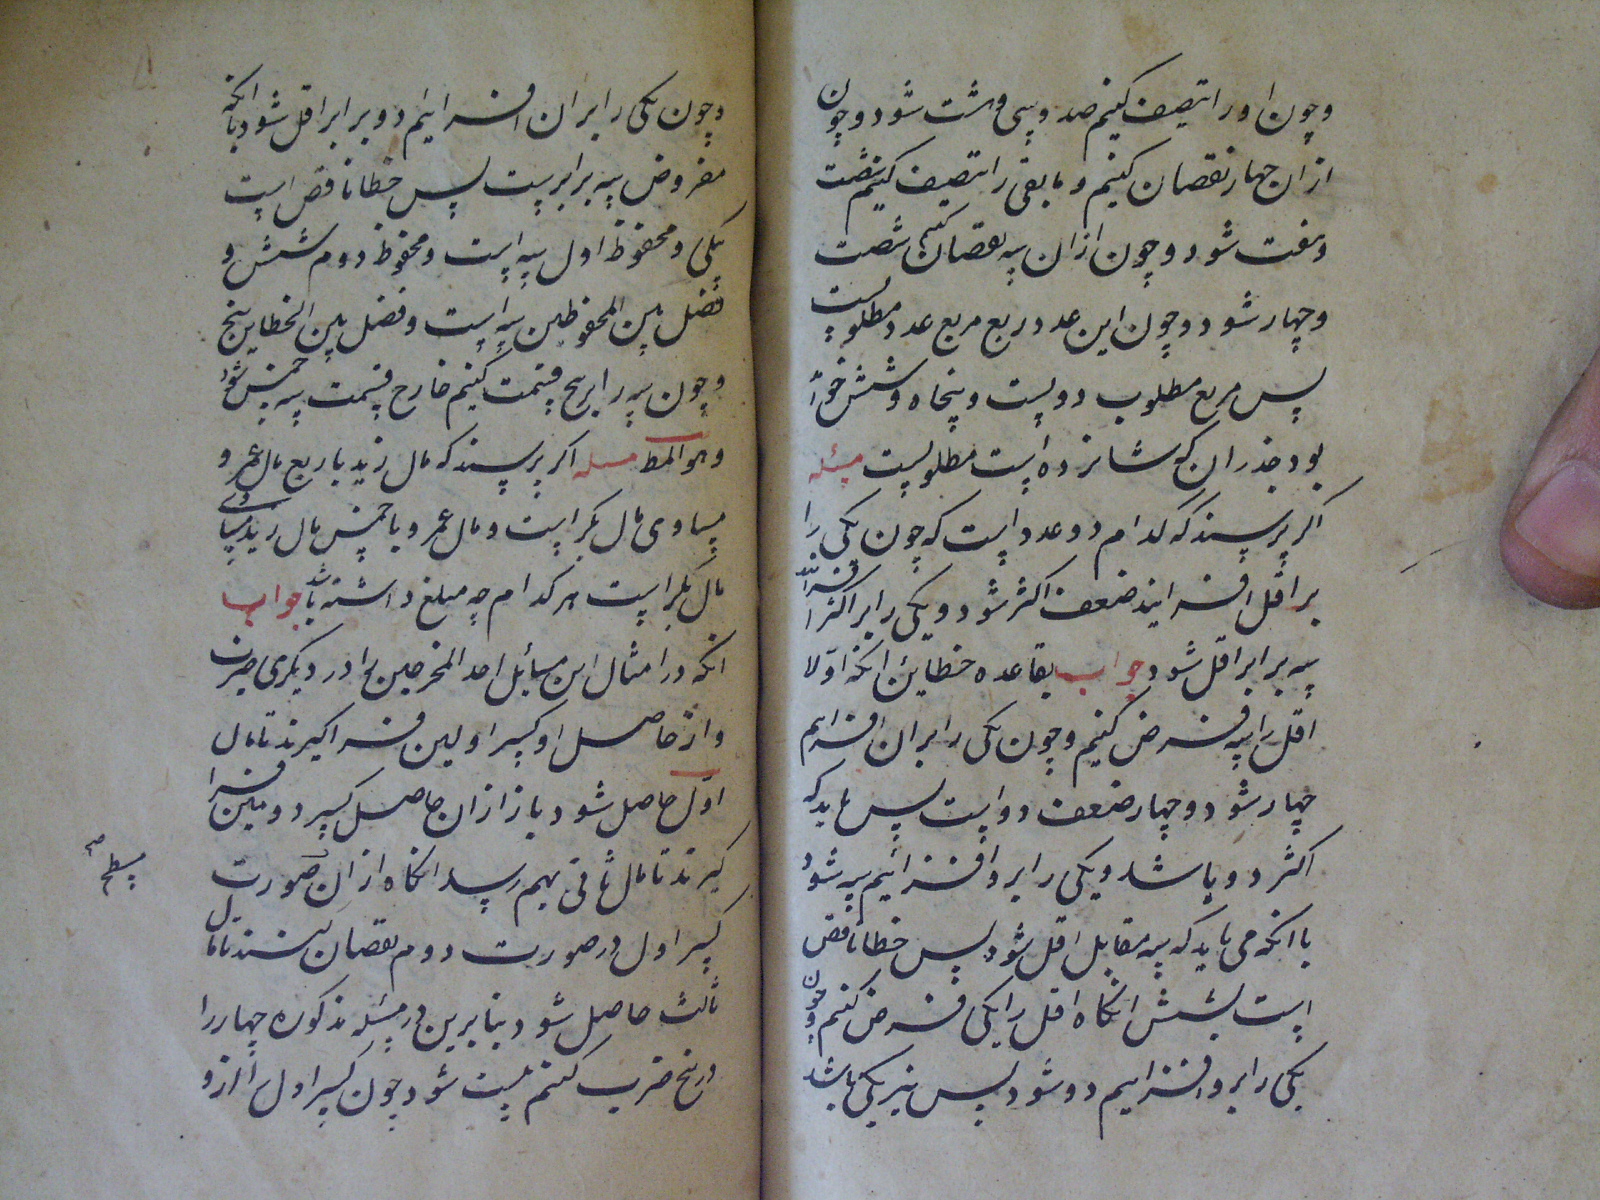 وچون او را تنصیف کنیم صد و سی و هشت شود و چون
ازان چهار نقصان کنیم و مابقی را تنصیف کنیم شصت
و هفت شود و چون ازان سه نقصان کنیم شصت
و چهار شود و چون این عدد ربع مربع عدد مطلوبست
پس مربع مطلوب دویست و پنجاه و شش خواهد
بود جذر ان که شانزده است مطلوبست مسئله
اکر پرسند که کدام دو عدد است که چون یکی را
بر اقل افزایند ضعف اکثر شود و یکی را بر اکثر افزایند
سه برابر اقل شود جواب بقاعده خطاین انکه اولا
اقل را سه فرض کنیم و چون یکی را بر ان افزایم
چهار شود و چهار ضعف دو است پس باید که
اکثر دو باشد و یکی را بر و افزائیم سه شود
با انکه می باید که سه مقابل اقل شود پس خطا ناقص
است بشش انکاه اقل را یکی فرض کنیم و چون
یکی را بر و افزاییم دو شود پس نیز یکی باشد
و چون یکی را بر ان افزائیم دو برابر اقل شود با انکه
مفروض سه برابرست پس خطا ناقص است
بیکی و محفوظ اول سه است و محفوظ دوم شش و
فضل بین المحفوظین سه است و فضل بین الخطاین پنج
و چون سه را بر پنج قسمت کنیم خارج قسمت سه خمس شود
و هو المط مسله اکر پرسند که مال زید با ربع مال عمرو
مساوی مال بکر است و مال عمرو با خمس مال زید مساوی
مال بکر است هر کدام چه مبلغ داشته باشد جواب
انکه در امثال این مسائل احد المخرجین را در دیکری ضرب
و از حاصل او کسر اولین فرا کیرند تا مال
اول حاصل شود باز ازان حاصل کسر دومین فرا
کیرند تا مال ثانی بهم رسد انکاه ازان صورت
مسطح صح
کسر اول در صورت دوم نقصان کنند تا مال
ثالث حاصل شود بنابرین در مسئله مذکوره چهار را
در پنج ضرب کنیم بیست شود چون کسر اول را ازو